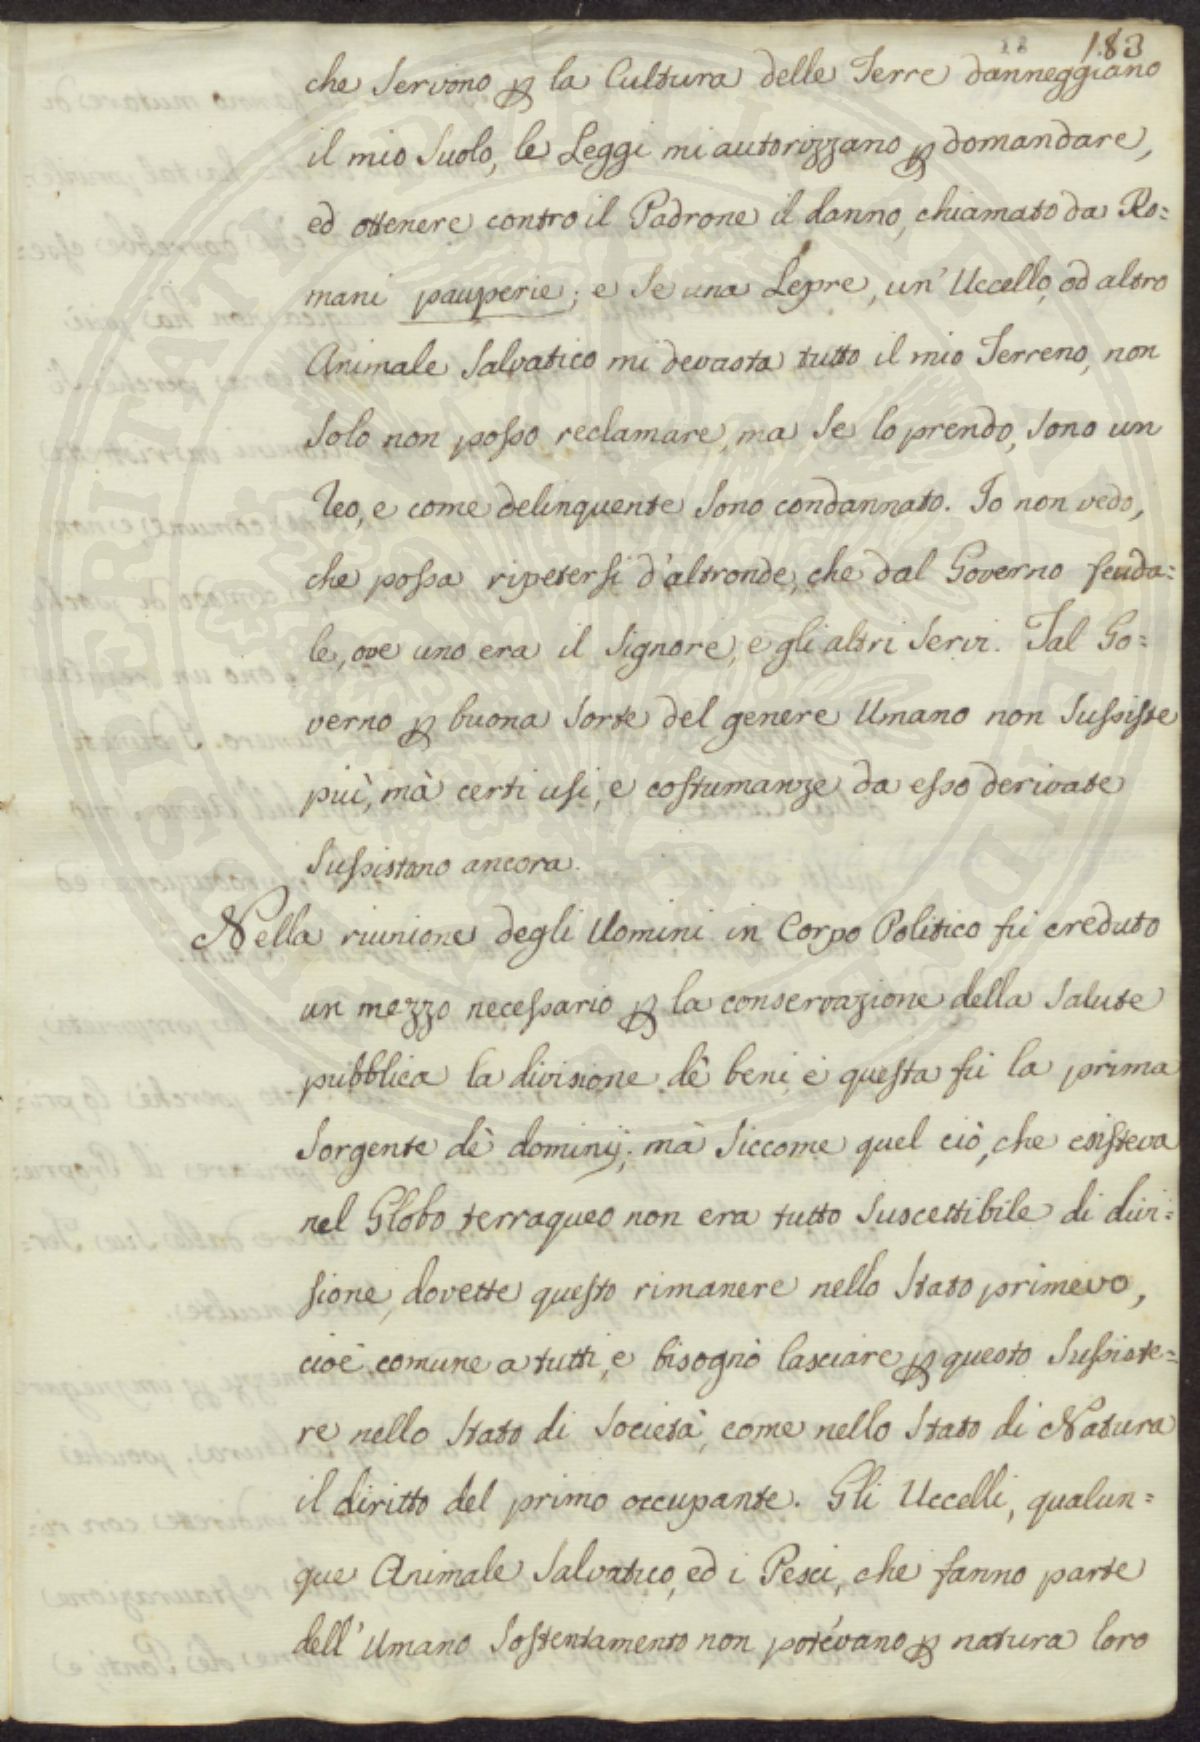 183
che servono ꝑ la Cultura delle Terre danneggiano
il mio suolo, le Leggi mi autorizzano ꝑ domandare,
ed ottenere contro il Padrone il danno, chiamato da Ro=
mani pauperie; e se una Lepre, un' Uccello, od altro
Animale salvatico mi devasta tutto il mio Terreno, non
solo non posso reclamare, ma se lo prendo, sono un
Reo, e come delinquente sono condannato. Io non vedo,
che possa ripetersi d'altronde, che dal Governo feuda=
le, ove uno era il Signore, e gli altri servi. Tal Go=
verno ꝑ buona sorte del genere Umano non sussiste
più, mà certi usi, e costumanze da esso derivate
sussistono ancora.
Nella riunione degli Uomini in Corpo Politico fù creduto
un mezzo necessario ꝑ la conservazione della salute
pubblica la divisione dè beni, e questa fù la prima
sorgente dè dominij; mà siccome quel ciò, che esisteva
nel Globo terraqueo non era tutto suscettibile di divi=
sione, dovette questo rimanere nello stato primevo,
cioè comune a tutti, e bisognò lasciare ꝑ questo sussiste=
re nello stato di società, come nello stato di Natura
il diritto del primo occupante. Gli Uccelli, qualun=
que Animale salvatico, ed i Pesci, che fanno parte
dell'Umano sostentamento non potévano ꝑ natura loro